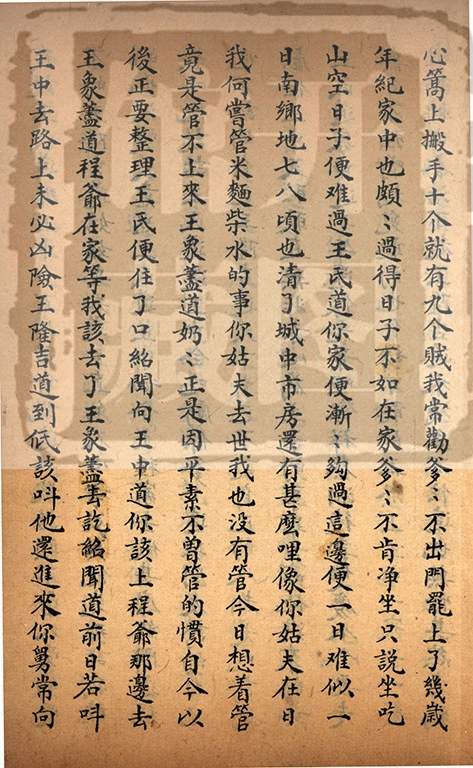 心篙上搬手十个就有九个賊我常勸爹〻不出門罷上了幾歲
年紀家中也頗〻過得日子不如在家爹〻不肯净坐只說坐吃
山空日子便难過王氏道你家便漸〻夠過這邊便一日难似一
日南鄉地七八頃也清了城中市房還有甚麼哩像你姑夫在日
我何嘗管米麵柴水的事你姑夫去世我也没有管今日想着管
竟是管不上來王象藎道奶〻正是因平素不曾管的慣自今以
後正要整理王氏便住了口紹聞向王中道你該上程爺那邊去
王象藎道程爺在家等我該去了王象藎去訖紹聞道前日若呌
王中去路上未必凶險王隆吉道到底該呌他還進來你舅常向